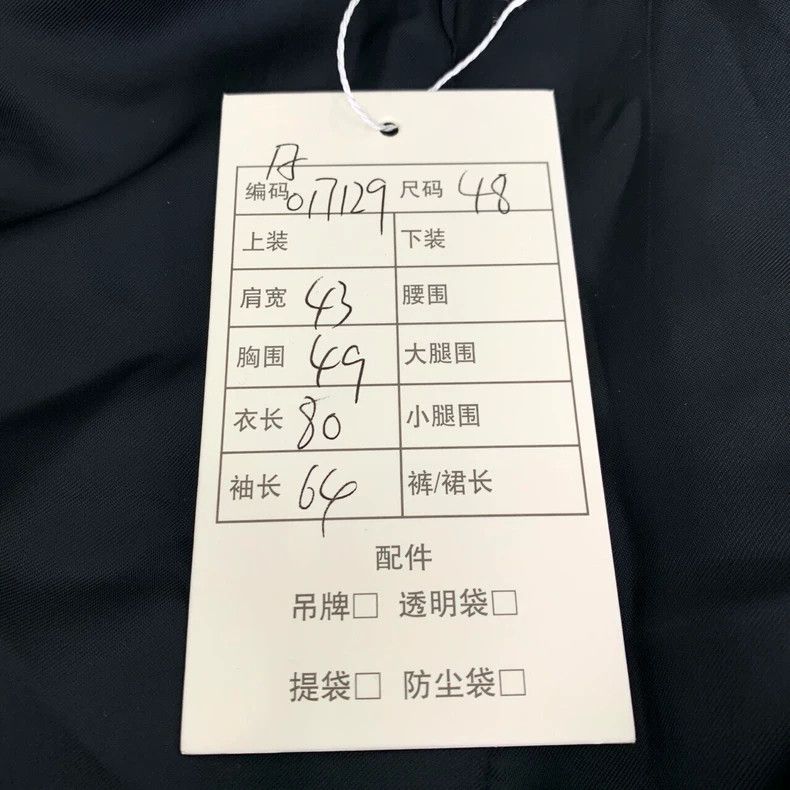 A
编码 017129 尺码 48
上装 下装
肩宽 43 腰围
胸围 49 大腿围
衣长 80 小腿围
袖长 64 裤/裙长
配件
吊牌□ 透明袋□
提袋□ 防尘袋□